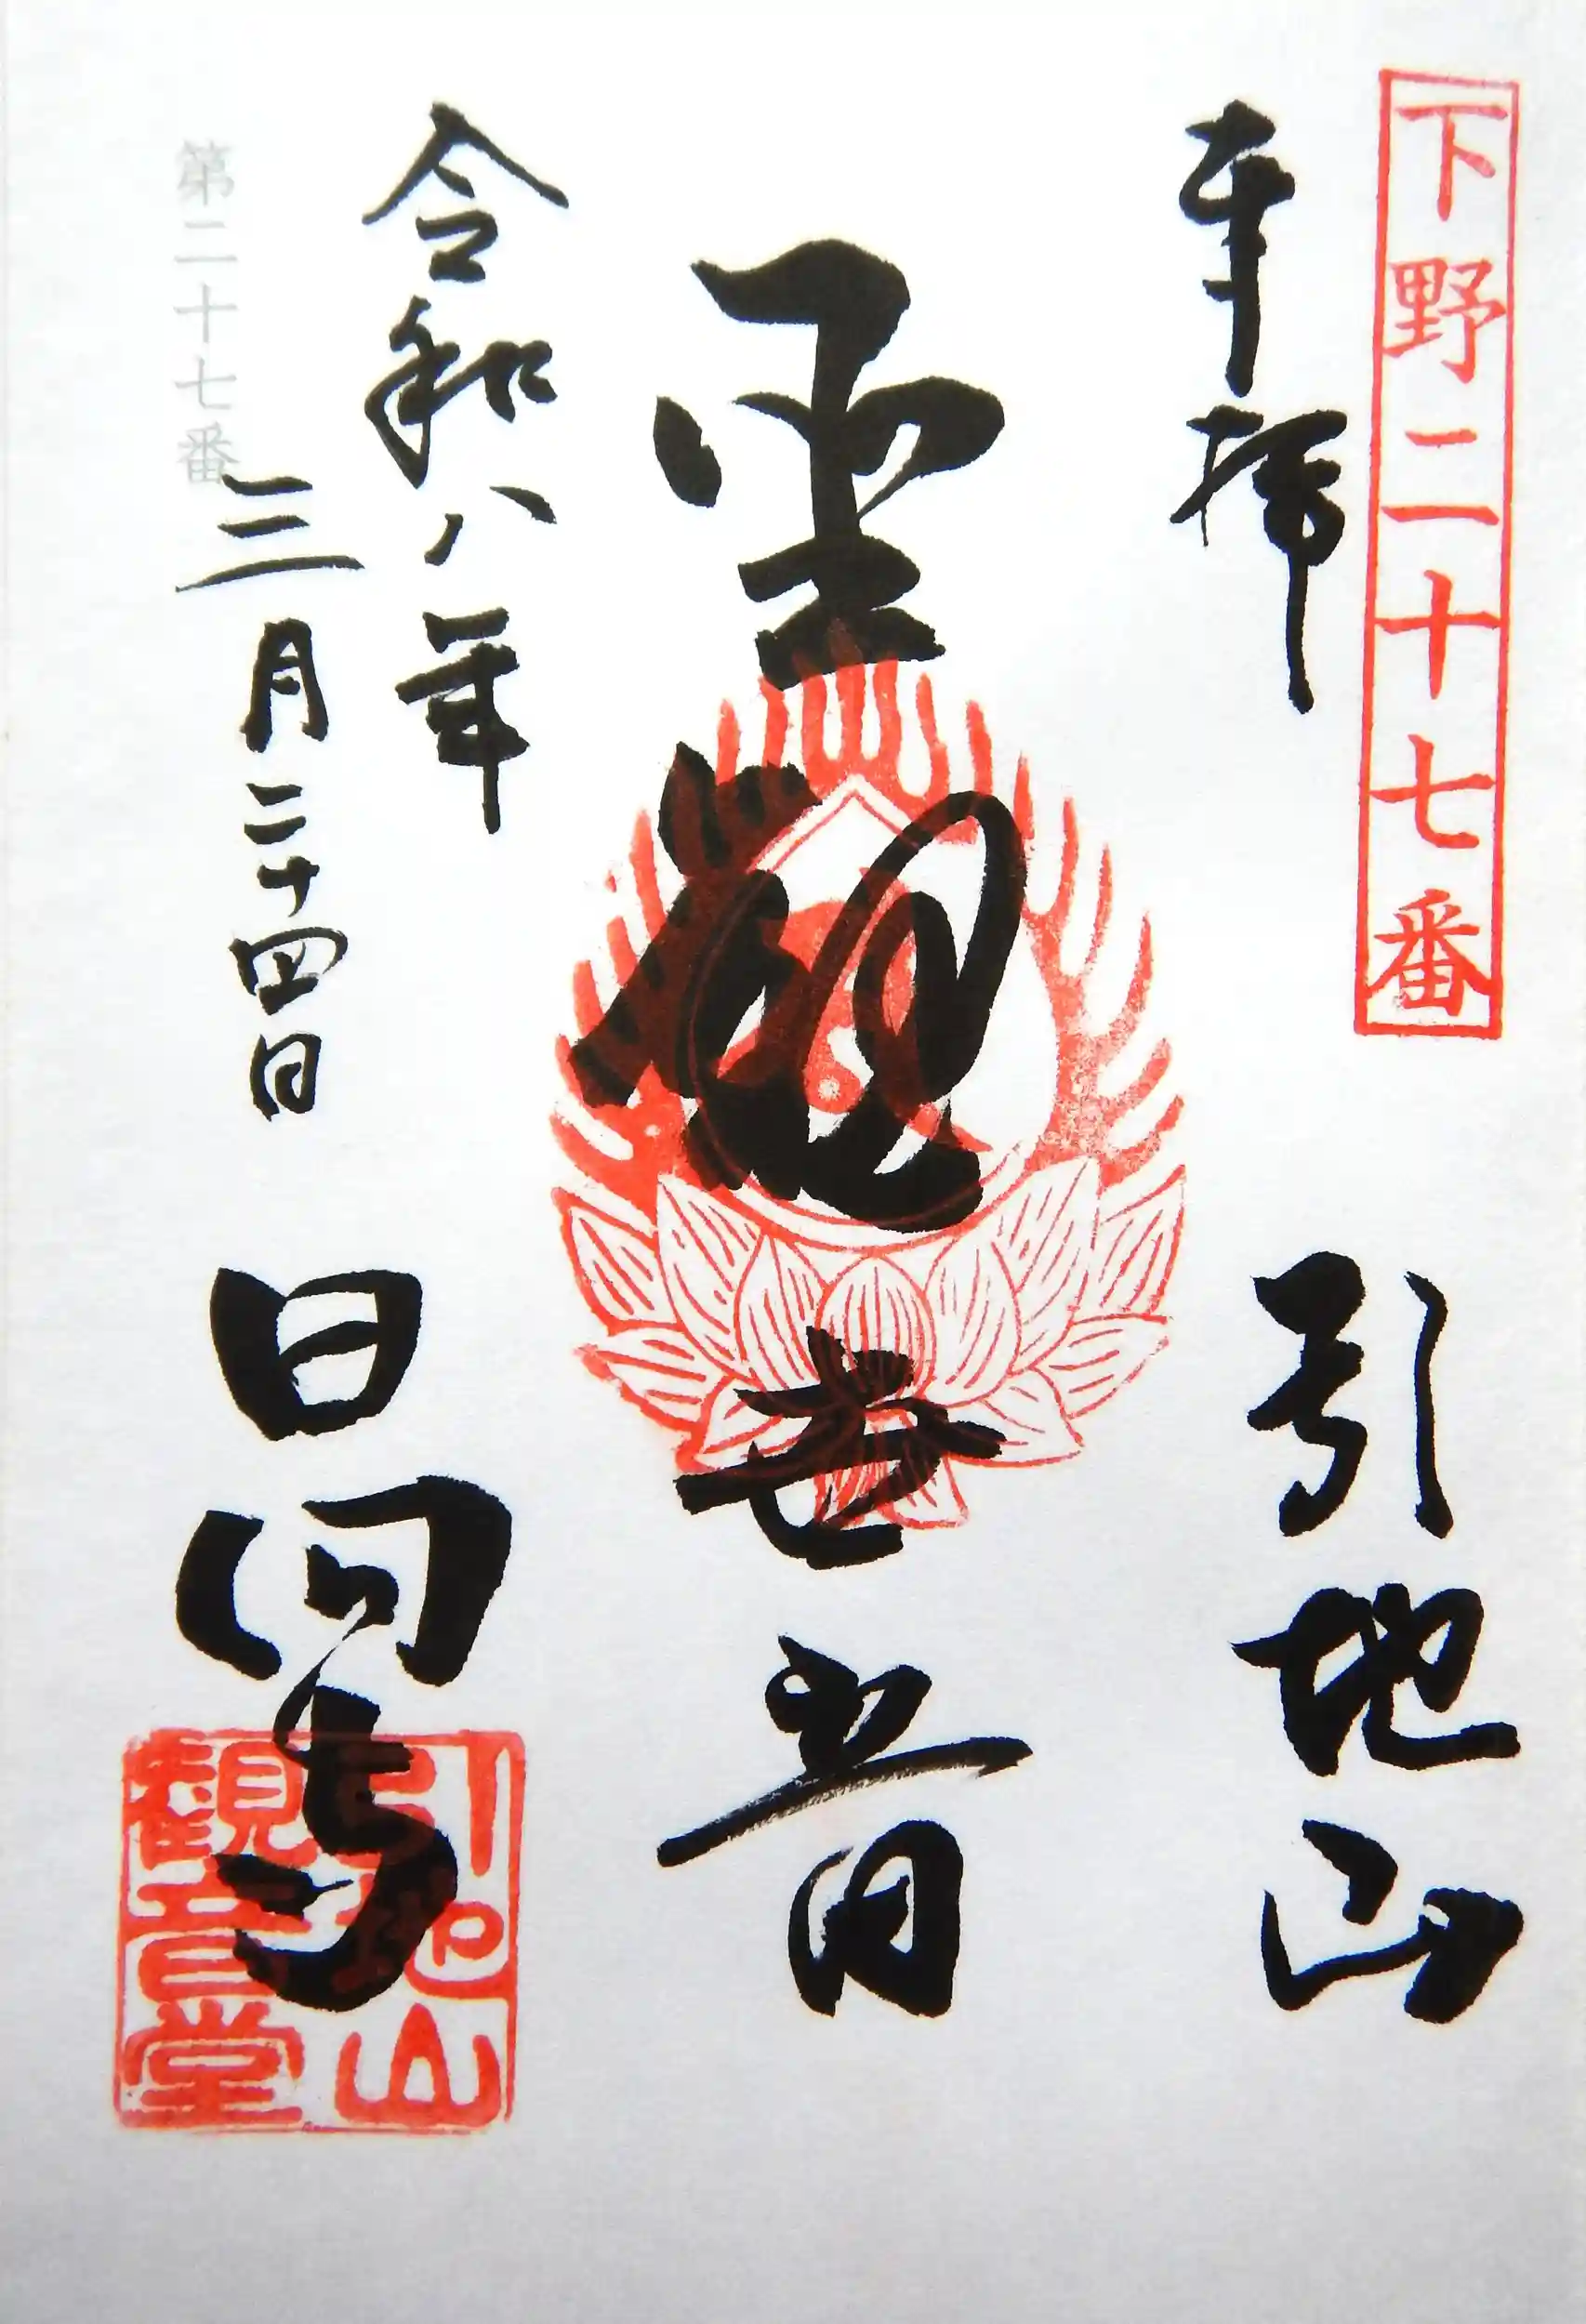 下野二十七番
奉拝
引地山
聖観世音
令和八年
三月二十四日
日向寺
引地山
観音堂
第二十七番